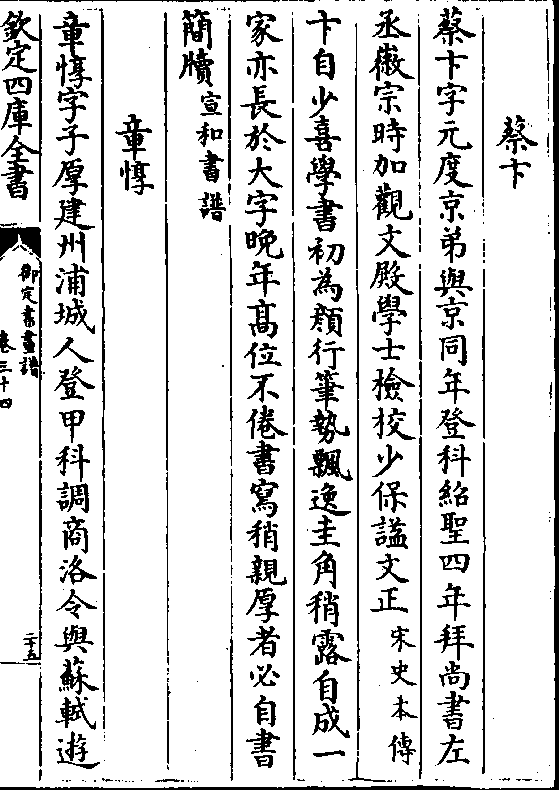 蔡卞
蔡卞字元度京弟與京同年登科紹聖四年拜尚書左
丞徽宗時加觀文殿學士檢校少保諡文正宋史本傳
卞自少喜學書初為顏行筆勢飄逸圭角稍露自成一
家亦長於大字晚年高位不倦書寫稍親厚者必自書
簡牘宣和書譜
章惇
章惇字子厚建州浦城人登甲科調商洛令與蘇軾遊
欽定四庫全書
御定書畫譜
卷三十四
二十五